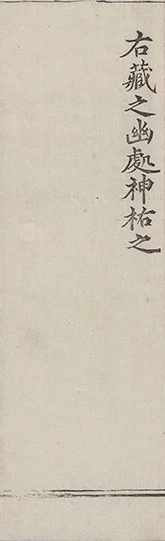 右藏之幽處神祐之